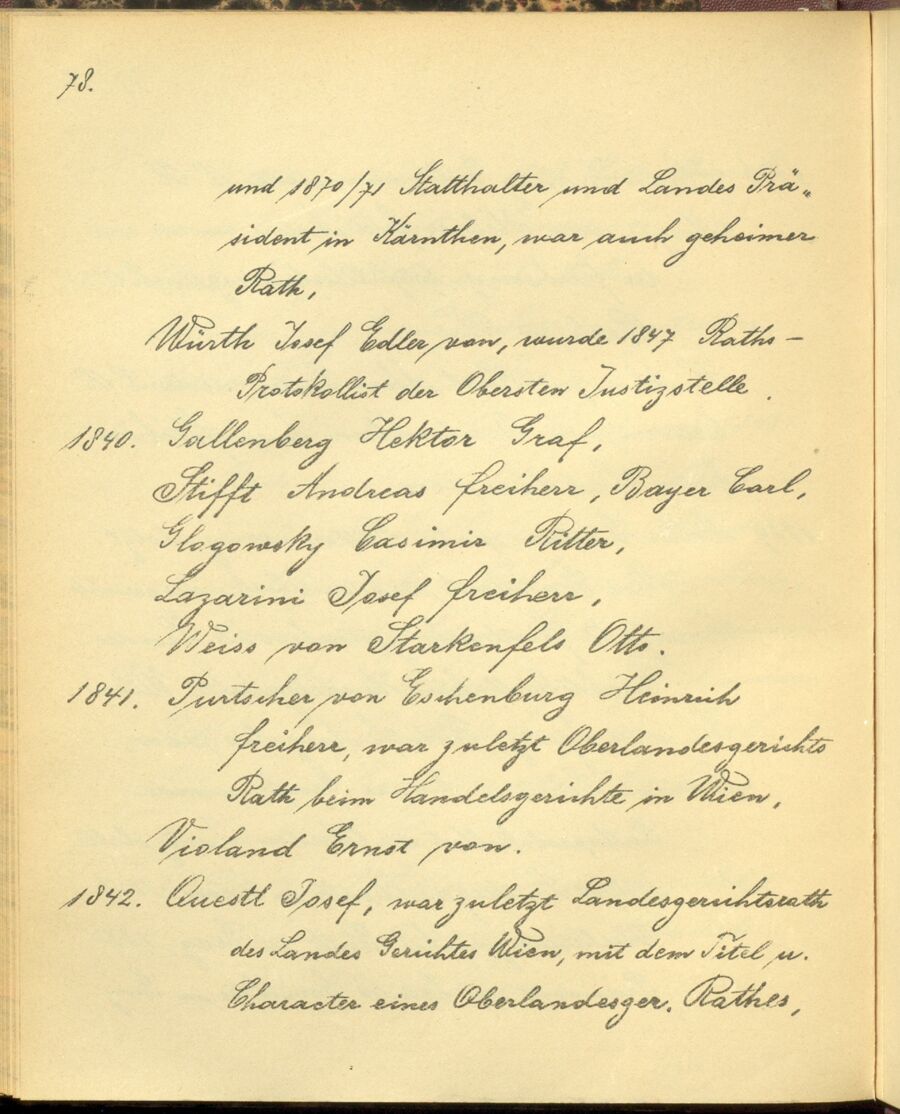 78.
und 1870/71 Statthalter und Landes Prä„
sident in Kärnthen, war auch geheimer
Rath,
Würth Josef Edler von, wurde 1847 Raths-
Protokollist der Obersten Justizstelle.
1840. Gallenberg Hektor Graf,
Stifft Andreas Freiherr, Bayer Carl,
Glogowsky Casimir Ritter,
Lazarini Josef Freiherr,
Weiss von Starkenfels Otto.
1841. Purtscher von Eschenburg Heinrich
Freiherr, war zuletzt Oberlandesgerichts
Rath beim Handelsgerichte in Wien,
Violand Ernst von.
1842. Questl Josef, war zuletzt Landesgerichtsrath
des Landes Gerichtes Wien, mit dem Titel u.
Character eines Oberlandesger. Rathes,